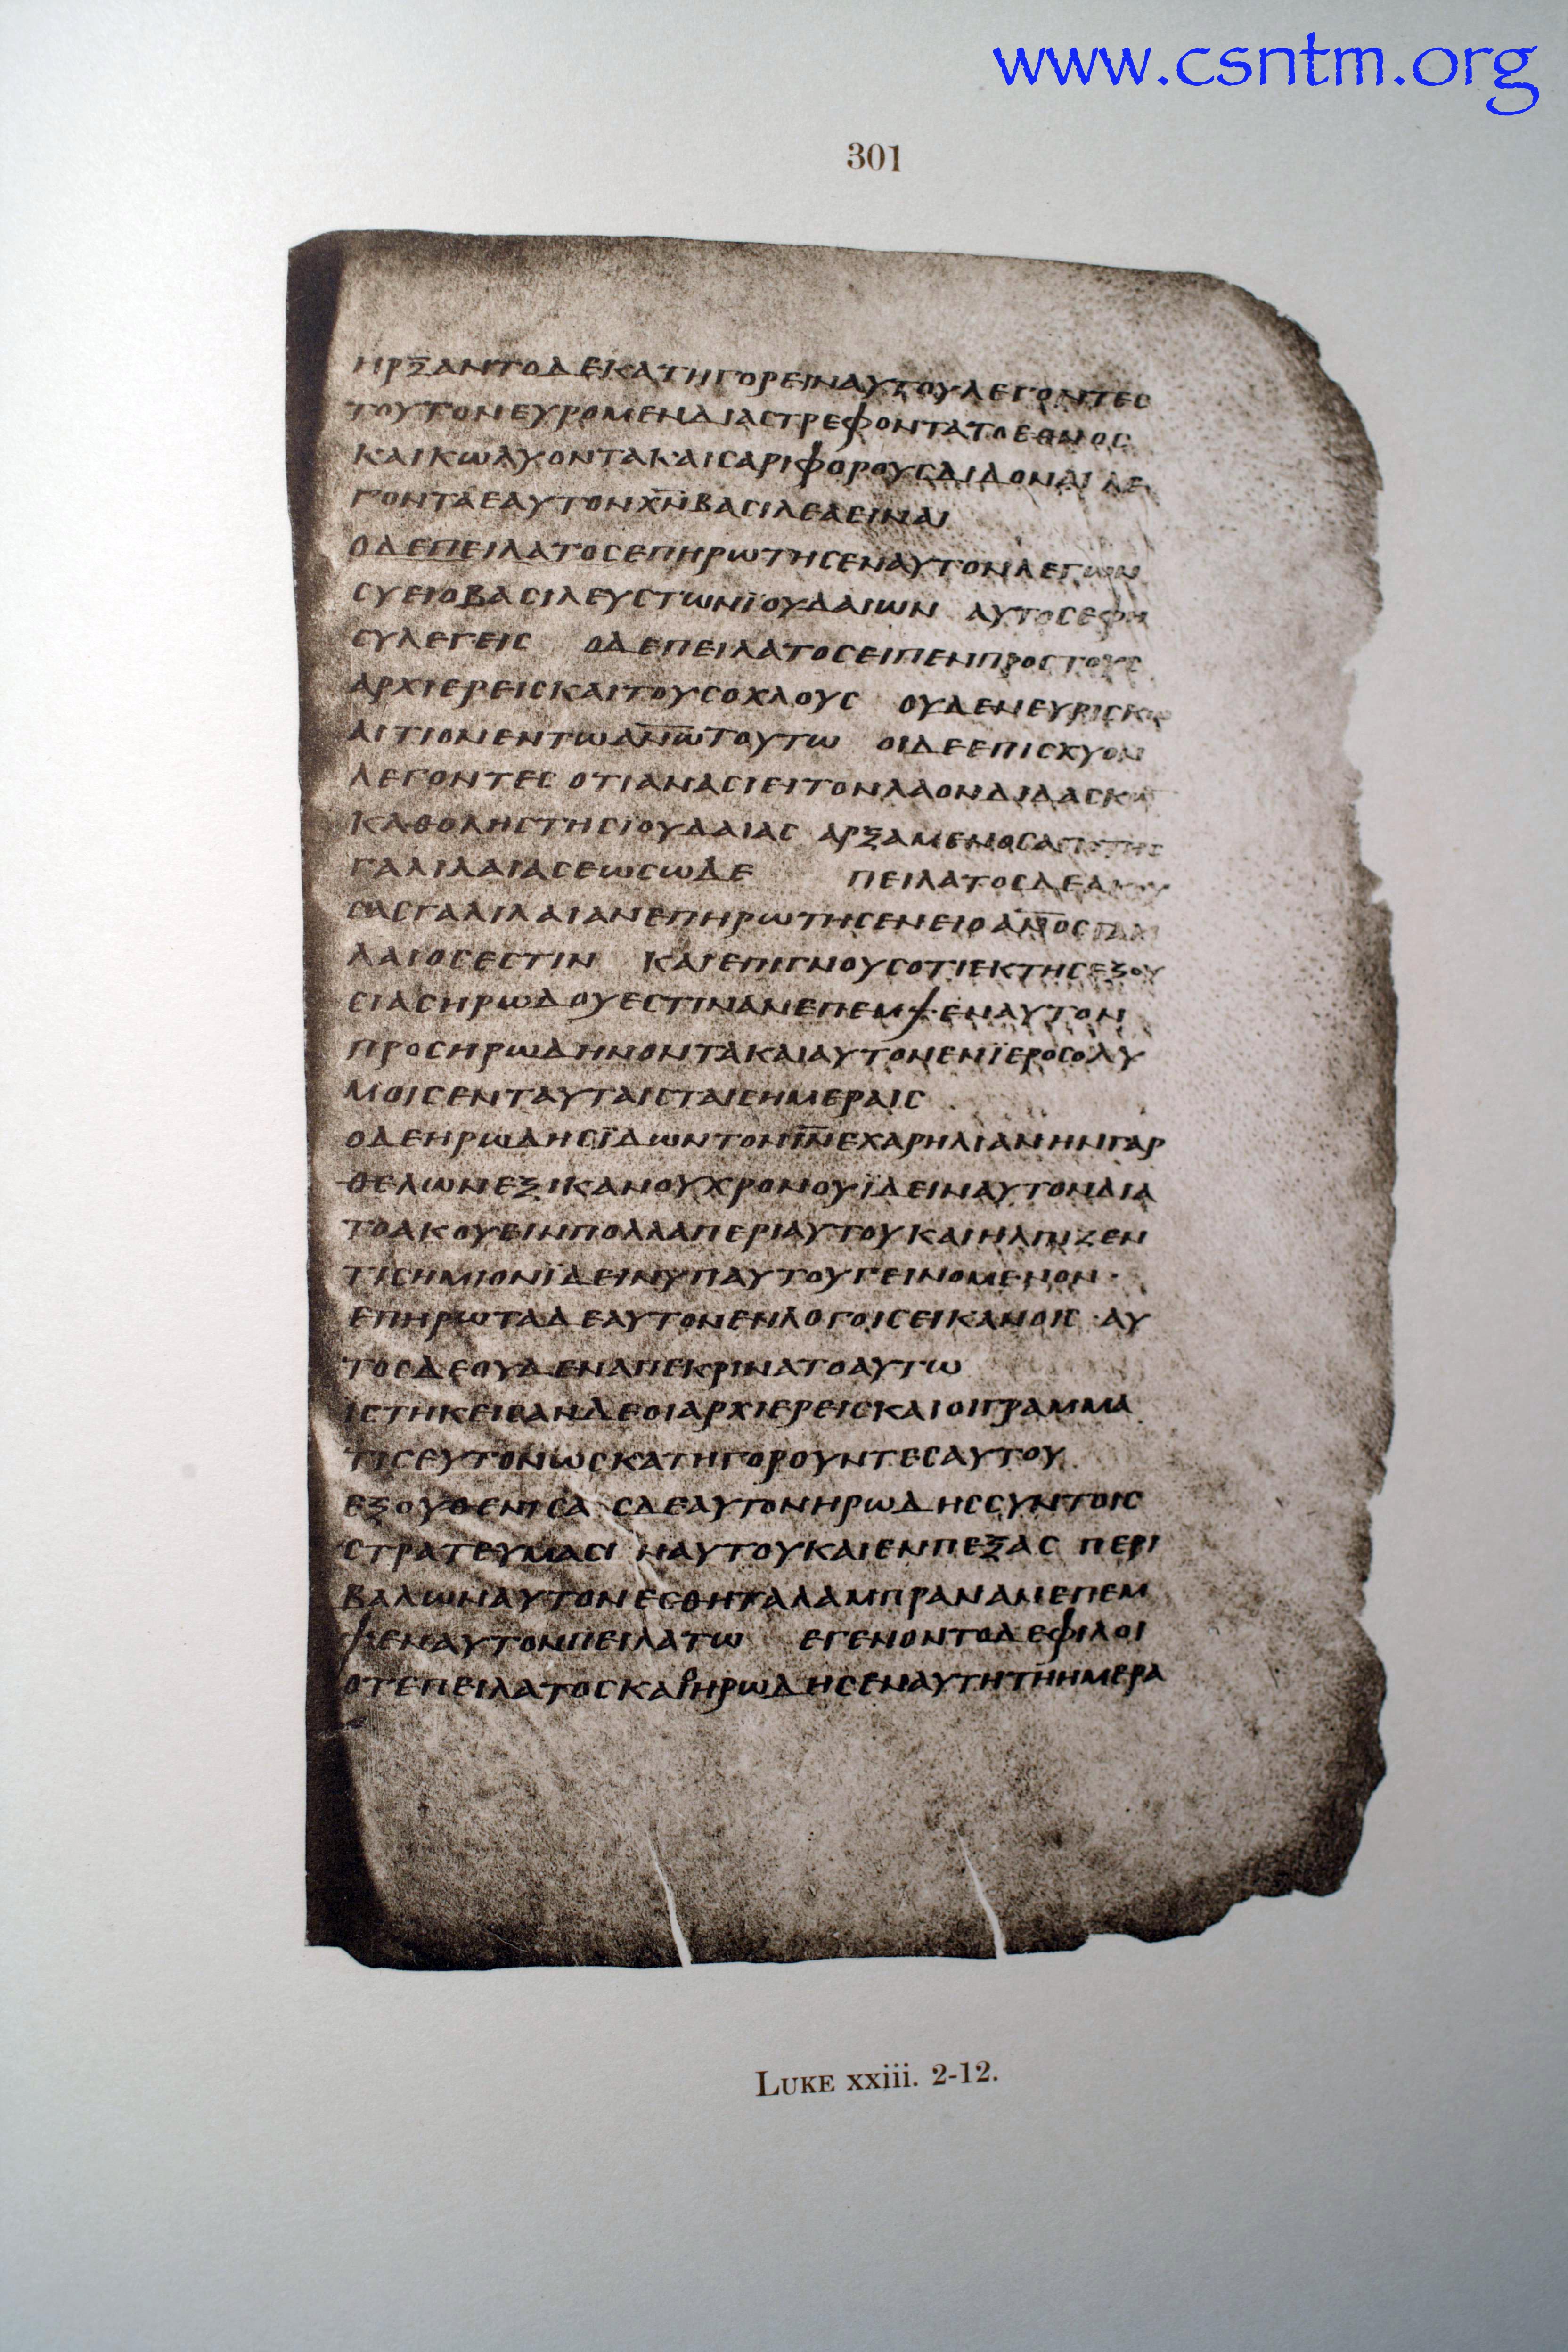 www.csntm.org
301
ΗΡΞΑΝΤΟΔΕΚΑΤΗΓΟΡΕΙΝΑΥΤΟΥΛΕΓΟΝΤΕС
ΤΟΥΤΟΝΕΥΡΟΜΕΝΔΙΑСΤΡΕΦΟΝΤΑΤΟΕΘΝΟС
ΚΑΙΚΩΛΥΟΝΤΑΚΑΙСΑΡΙΦΟΡΟΥСΔΙΔΟΝΑΙ ΛΕ
ΓΟΝΤΑΕΑΥΤΟΝΧ̅Ν̅ΒΑСΙΛΕΑΕΙΝΑΙ
ΟΔΕΠΕΙΛΑΤΟСΕΠΗΡΩΤΗСΕΝΑΥΤΟΝΛΕΓΩΝ
СΥΕΙΟΒΑСΙΛΕΥСΤΩΝΪΟΥΔΑΙΩΝ ΑΥΤΟСΕΦΗ
СΥΛΕΓΕΙС ΟΔΕΠΕΙΛΑΤΟСΕΙΠΕΝΠΡΟСΤΟΥС
ΑΡΧΙΕΡΕΙСΚΑΙΤΟΥСΟΧΛΟΥС ΟΥΔΕΝΕΥΡΙСΚΩ
ΑΙΤΙΟΝΕΝΤΩΑ̅Ν̅Ω̅ΤΟΥΤΩ ΟΙΔΕΕΠΙСΧΥΟΝ
ΛΕΓΟΝΤΕС ΟΤΙΑΝΑСΙΕΙΤΟΝΛΑΟΝΔΙΔΑСΚΩ
ΚΑΘΟΛΗСΤΗСΪΟΥΔΑΙΑС ΑΡΞΑΜΕΝΟСΑΠΟΤΗС
ΓΑΛΙΛΑΙΑСΕΩСΩΔΕ ΠΕΙΛΑΤΟСΔΕΑΚΟΥ
СΑСΓΑΛΙΛΑΙΑΝΕΠΗΡΩΤΗСΕΝΕΙΟΑ̅Ν̅Ο̅СΓΑΛΙ
ΛΑΙΟСΕСΤΙΝ ΚΑΙΕΠΙΓΝΟΥСΟΤΙΕΚΤΗСΕΞΟΥ
СΙΑСΗΡΩΔΟΥΕСΤΙΝΑΝΕΠΕΜΨΕΝΑΥΤΟΝ
ΠΡΟСΗΡΩΔΗΝΟΝΤΑΚΑΙΑΥΤΟΝΕΝΪΕΡΟСΟΛΥ
ΜΟΙСΕΝΤΑΥΤΑΙСΤΑΙСΗΜΕΡΑΙС
ΟΔΕΗΡΩΔΗСΪΔΩΝΤΟΝΙ̅Ν̅ΕΧΑΡΗΛΙΑΝΗΝΓΑΡ
ΘΕΛΩΝΕΞΙΚΑΝΟΥΧΡΟΝΟΥΪΔΕΙΝΑΥΤΟΝΔΙΑ
ΤΟΑΚΟΥΕΙΝΠΟΛΛΑΠΕΡΙΑΥΤΟΥΚΑΙΗΛΠΙΖΕΝ
ΤΙСΗΜΙΟΝΪΔΕΙΝΥΠΑΥΤΟΥΓΕΙΝΟΜΕΝΟΝ·
ΕΠΗΡΩΤΑΔΕΑΥΤΟΝΕΝΛΟΓΟΙСΕΙΚΑΝΟΙС·ΑΥ
ΤΟСΔΕΟΥΔΕΝΑΠΕΚΡΙΝΑΤΟΑΥΤΩ
ΙСΤΗΚΕΙСΑΝΔΕΟΙΑΡΧΙΕΡΕΙСΚΑΙΟΙΓΡΑΜΜΑ
ΤΙСΕΥΤΟΝΩСΚΑΤΗΓΟΡΟΥΝΤΕСΑΥΤΟΥ
ΕΞΟΥΘΕΝΙСΑ СΔΕΑΥΤΟΝΗΡΩΔΗССΥΝΤΟΙС
СΤΡΑΤΕΥΜΑСΙ ΝΑΥΤΟΥΚΑΙΕΝΠΕΞΑС ΠΕΡΙ
ΒΑΛΩΝΑΥΤΟΝΕСΘΗΤΑΛΑΜΠΡΑΝΑΝΕΠΕΜ
ΨΕΝΑΥΤΟΝΠΕΙΛΑΤΩ ΕΓΕΝΟΝΤΟΔΕΦΙΛΟΙ
ΟΤΕΠΕΙΛΑΤΟСΚΑΙΗΡΩΔΗСΕΝΑΥΤΗΤΗΗΜΕΡΑ
LUKE xxiii. 2-12.